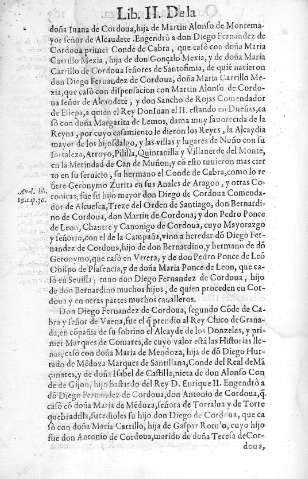 Lib. II. De la
doña Iuana de Cordoua, hija de Martin Alonso de Montema-
yor señor de Alcaudete. Engendrò a don Diego Fernandez de
Cordoua primer Conde de Cabra, que casò con doña Maria
Carrillo Mexia, hija de don Gonçalo Mexia, y de doña Maria
Carrillo de Cordoua señores de Santofimia, de quiē nacieron
don Diego Fernandez de Cordoua, doña Maria Carrillo Me-
xia, que casò con dispensacion con Martin Alonso de Cordo-
ua señor de Alcaudete, y don Sancho de Rojas Comendador
de Bliepa, a quien el Rey don Iuan el II. estando en Dueñas, ca
sò con doña Margarita de Lemos, dama muy fauorecida de la
Reyna, por cuyo casamiento le dieron los Reyes, la Alcaydia
mayor de los hijosdalgo, y las villas y lugares de Nuño con su
fortaleza, Arroyo, Pililla, Quintanilla y Villanete del Monte,
en la Merindad de Can de Muñon, y cō ello tuuieron mas cier
to en su seruicio, su hermano el Conde de Cabra, como lo re
fiere Geronymo Zurita en sus Anales de Aragon, y otras Co-
ronicas, fue su hijo mayor don Diego de Cordoua Comenda-
dor de Alcuesca, Treze del Orden de Santiago, don Bernardi-
no de Cordoua, don Martin de Cordoua, y don Pedro Ponce
de Leon, Chantre y Canonigo de Cordoua, cuyo Mayorazgo
y señorio, con el de la Campiña, vino a heredar dō Diego Fer-
nandez de Cordoua, hijo de don Bernardino, y hermano de dō
Geronymo, que casò en Vexera, y de don Pedro Ponce de Leō
Obispo de Plasencia, y de doña Maria Ponce de Leon, que ca-
sò en Seuilla; tuuo don Diego Fernandez de Cordoua, hijo
de don Bernardino muchos hijos, de quien proceden en Cor-
doua y en otras partes muchos caualleros.
Don Diego Fernandez de Cordoua, segundo Cōde de Ca-
bra y señor de Vaena, fue el q̄ prendio al Rey Chico de Grana-
da, en cōpañia de su sobrino el Alcayde de los Donzeles, y pri-
mer Marques de Comares, de cuyo valor està las Historias lle-
nas, casò con doña Maria de Mendoza, hija de dō Diego Hur-
tado de Mēdoza Marques de Santillana, Conde del Real de Mā
çanares, y de doña Isabel de Castilla, nieta de don Alonso Con
de de Gijon, hijo bastardo del Rey D. Enrique II. Engendrò a
dō Diego Fernandez de Cordoua, don Antonio de Cordoua, q̄
casò cō doña Maria de Mēdoza, señora de Torralua y de Torre
quebradilla, sucedioles su hijo don Diego de Cordoua, que ca
sò con doña Maria Carrillo, hija de Gaspar Rotulo, cuyo hijo
fue don Antonio de Cordoua, marido de doña Teresa de Cor-
doua,